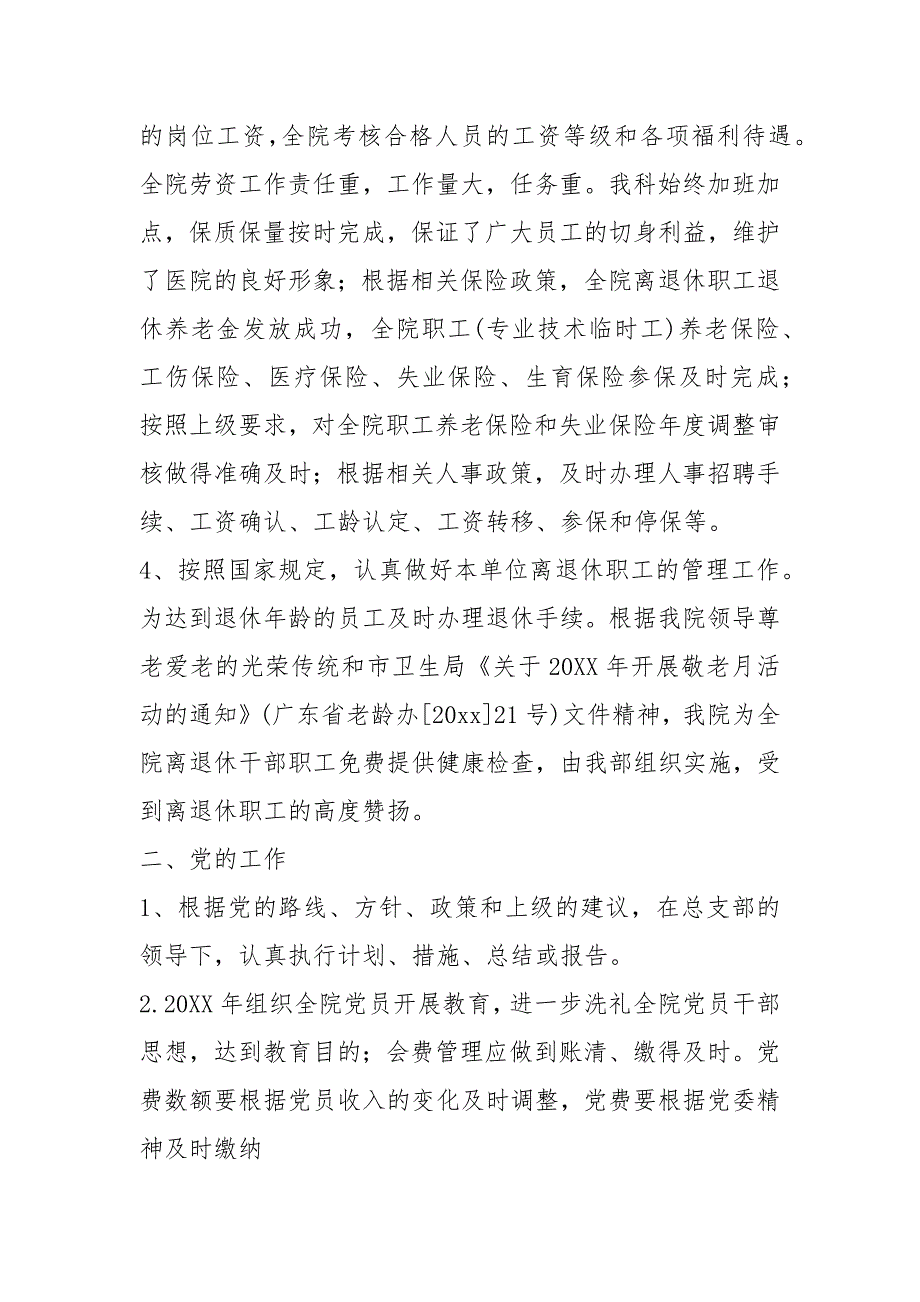 的岗位工资,全院考核合格人员的工资等级和各项福利待遇。
全院劳资工作责任重，工作量大，任务重。我科始终加班加
点，保质保量按时完成，保证了广大员工的切身利益，维护
了医院的良好形象；根据相关保险政策，全院离退休职工退
休养老金发放成功，全院职工(专业技术临时工)养老保险、
工伤保险、医疗保险、失业保险、生育保险参保及时完成；
按照上级要求，对全院职工养老保险和失业保险年度调整审
核做得准确及时；根据相关人事政策，及时办理人事招聘手
续、工资确认、工龄认定、工资转移、参保和停保等。
4、按照国家规定，认真做好本单位离退休职工的管理工作。
为达到退休年龄的员工及时办理退休手续。根据我院领导尊
老爱老的光荣传统和市卫生局《关于 20XX 年开展敬老月活
动的通知》(广东省老龄办[20xx]21 号)文件精神，我院为全
院离退休干部职工免费提供健康检查，由我部组织实施，受
到离退休职工的高度赞扬。
二、党的工作
1、根据党的路线、方针、政策和上级的建议，在总支部的
领导下，认真执行计划、措施、总结或报告。
2.20XX 年组织全院党员开展教育,进一步洗礼全院党员干部
思想，达到教育目的；会费管理应做到账清、缴得及时。党
费数额要根据党员收入的变化及时调整，党费要根据党委精
神及时缴纳